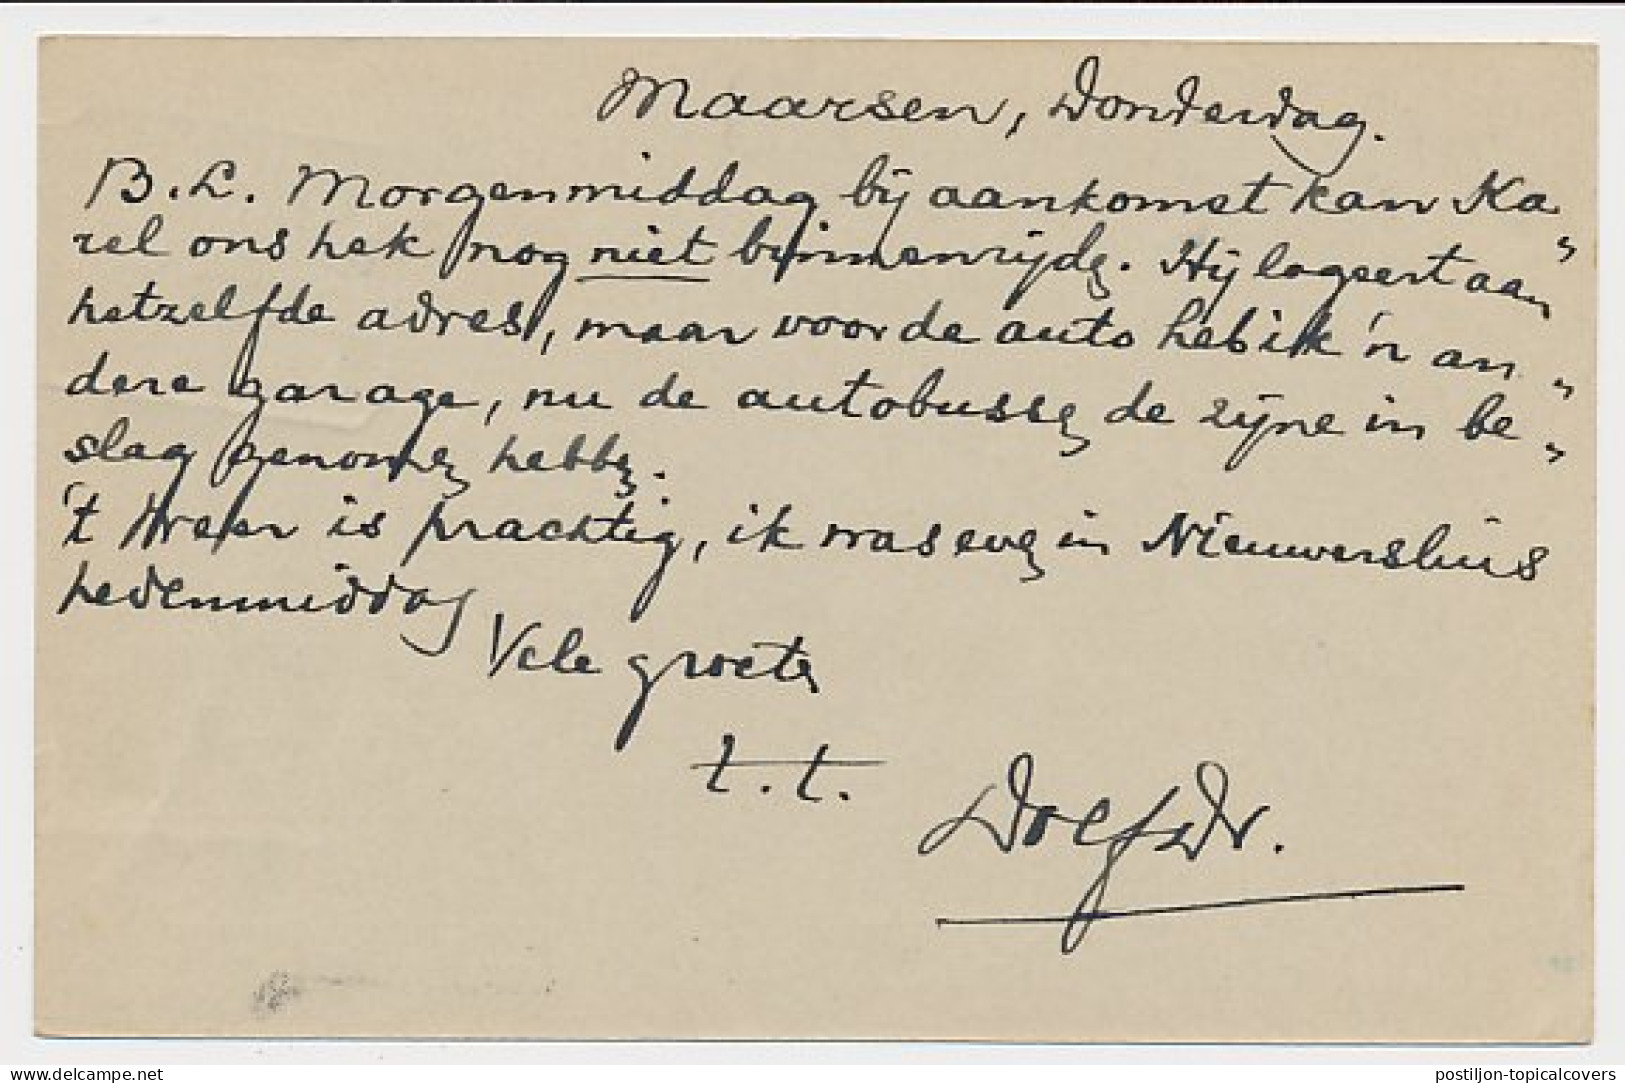 Maarsen, Donderdag.
B.L. Morgenmiddag bij aankomst kan Ka„
rel ons hek nog niet binnenrijdn. Hij logeert aan
hetzelfde adres, maar voor de auto heb ik 'n an„
dere garage, nu de autobussn de zijne in be„
slag genomn hebbn.
't Weer is prachtig, ik was evn in Nieuwersluis
hedenmiddag
Vele groetn
t.t.
Dolf Dr.
delcampe.net
postiljon-topicalcovers